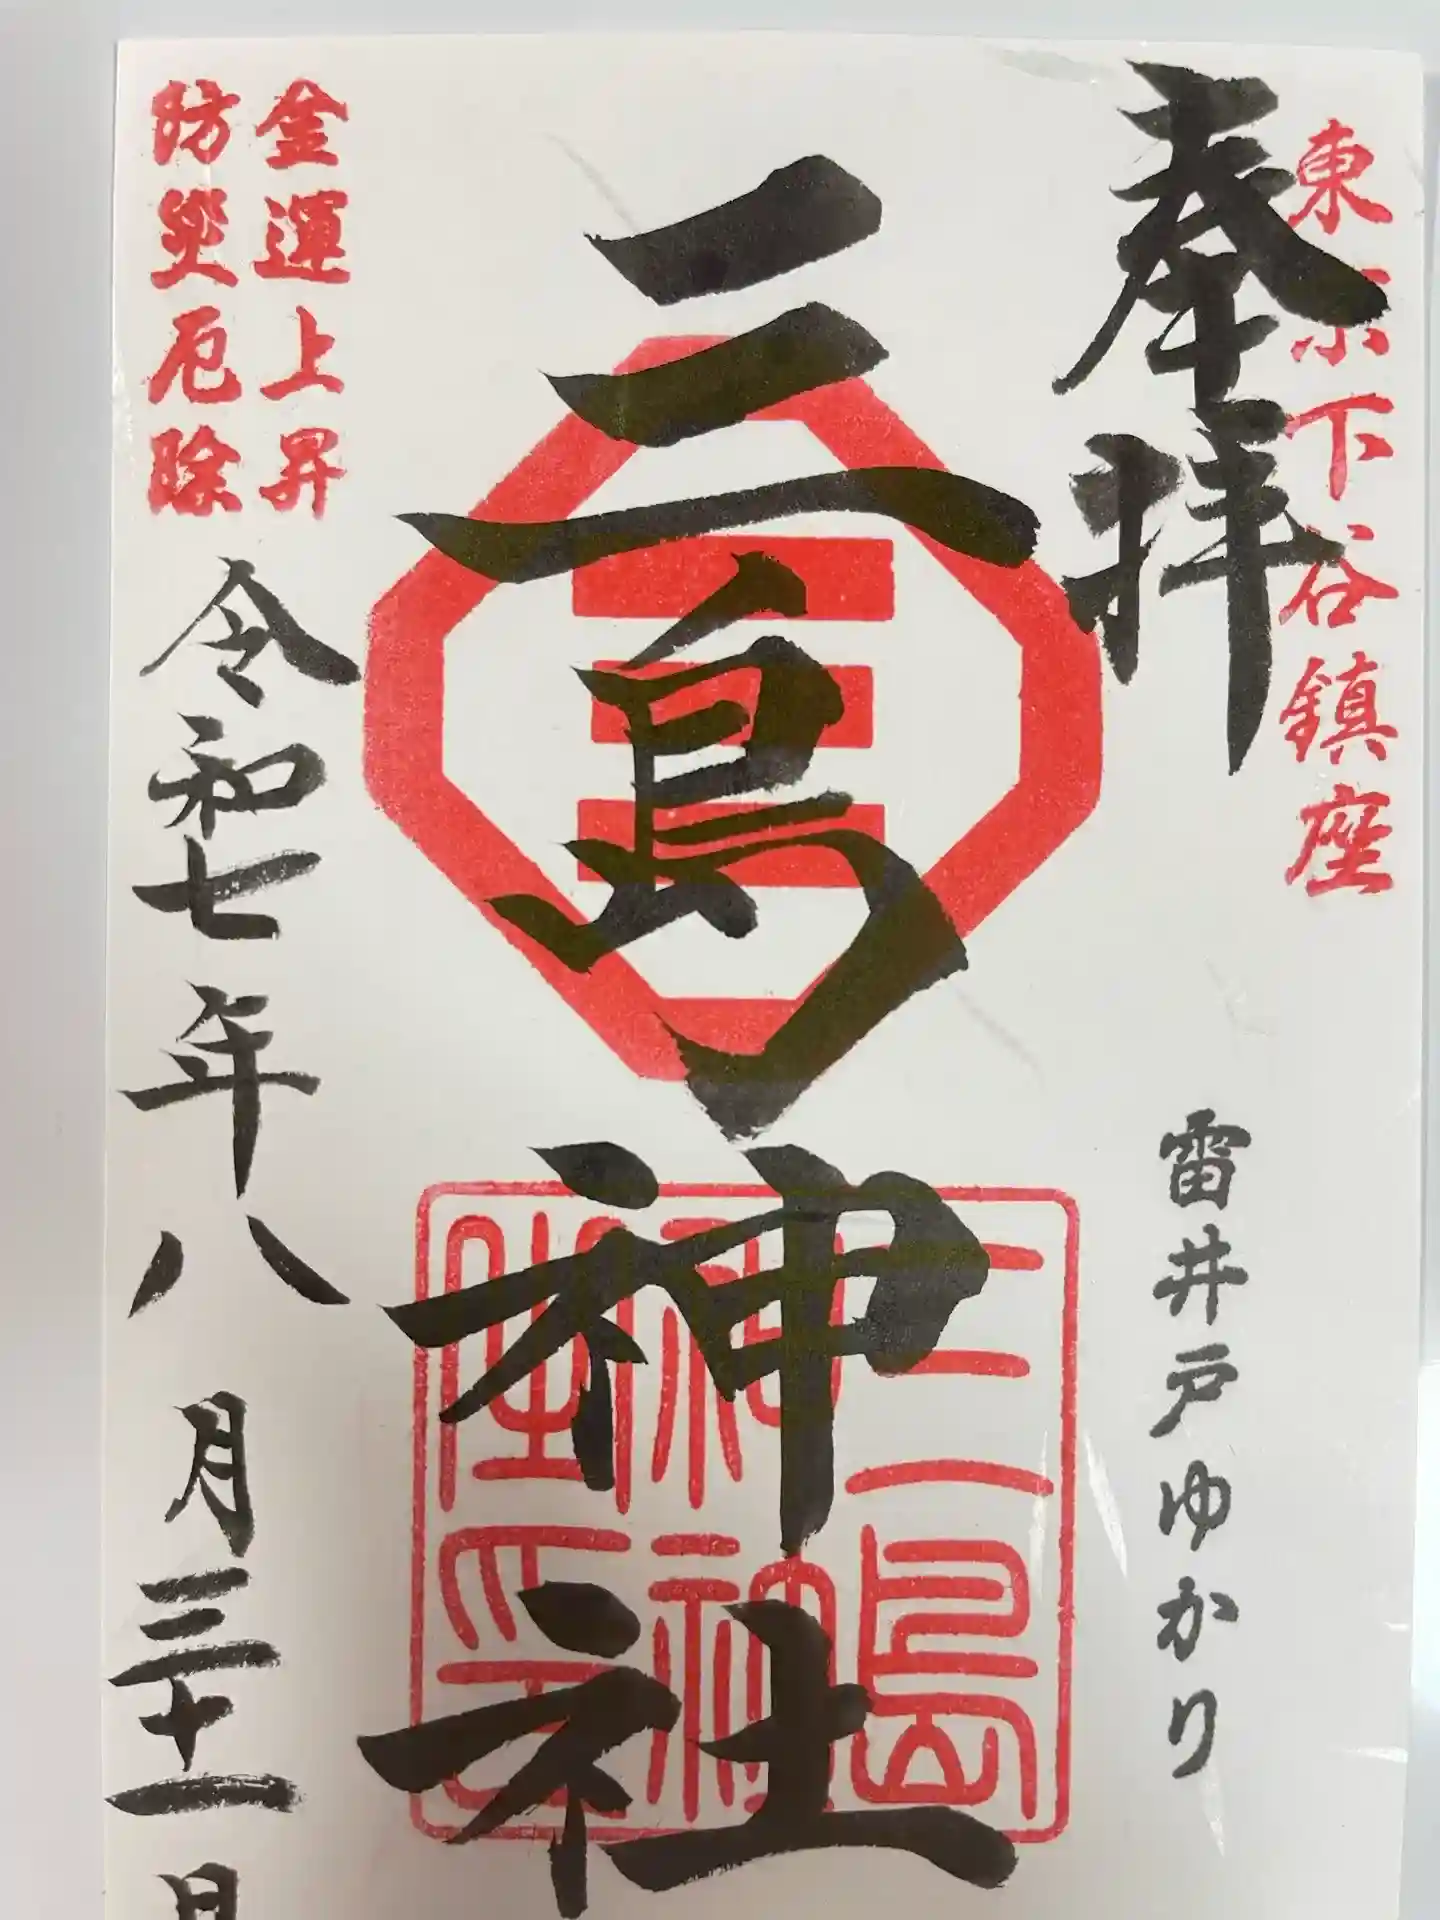 東京下谷鎮座
奉拝
雷井戸ゆかり
三島神社
三島
神社
之印
金運上昇
防災厄除
令和七年八月三十一日